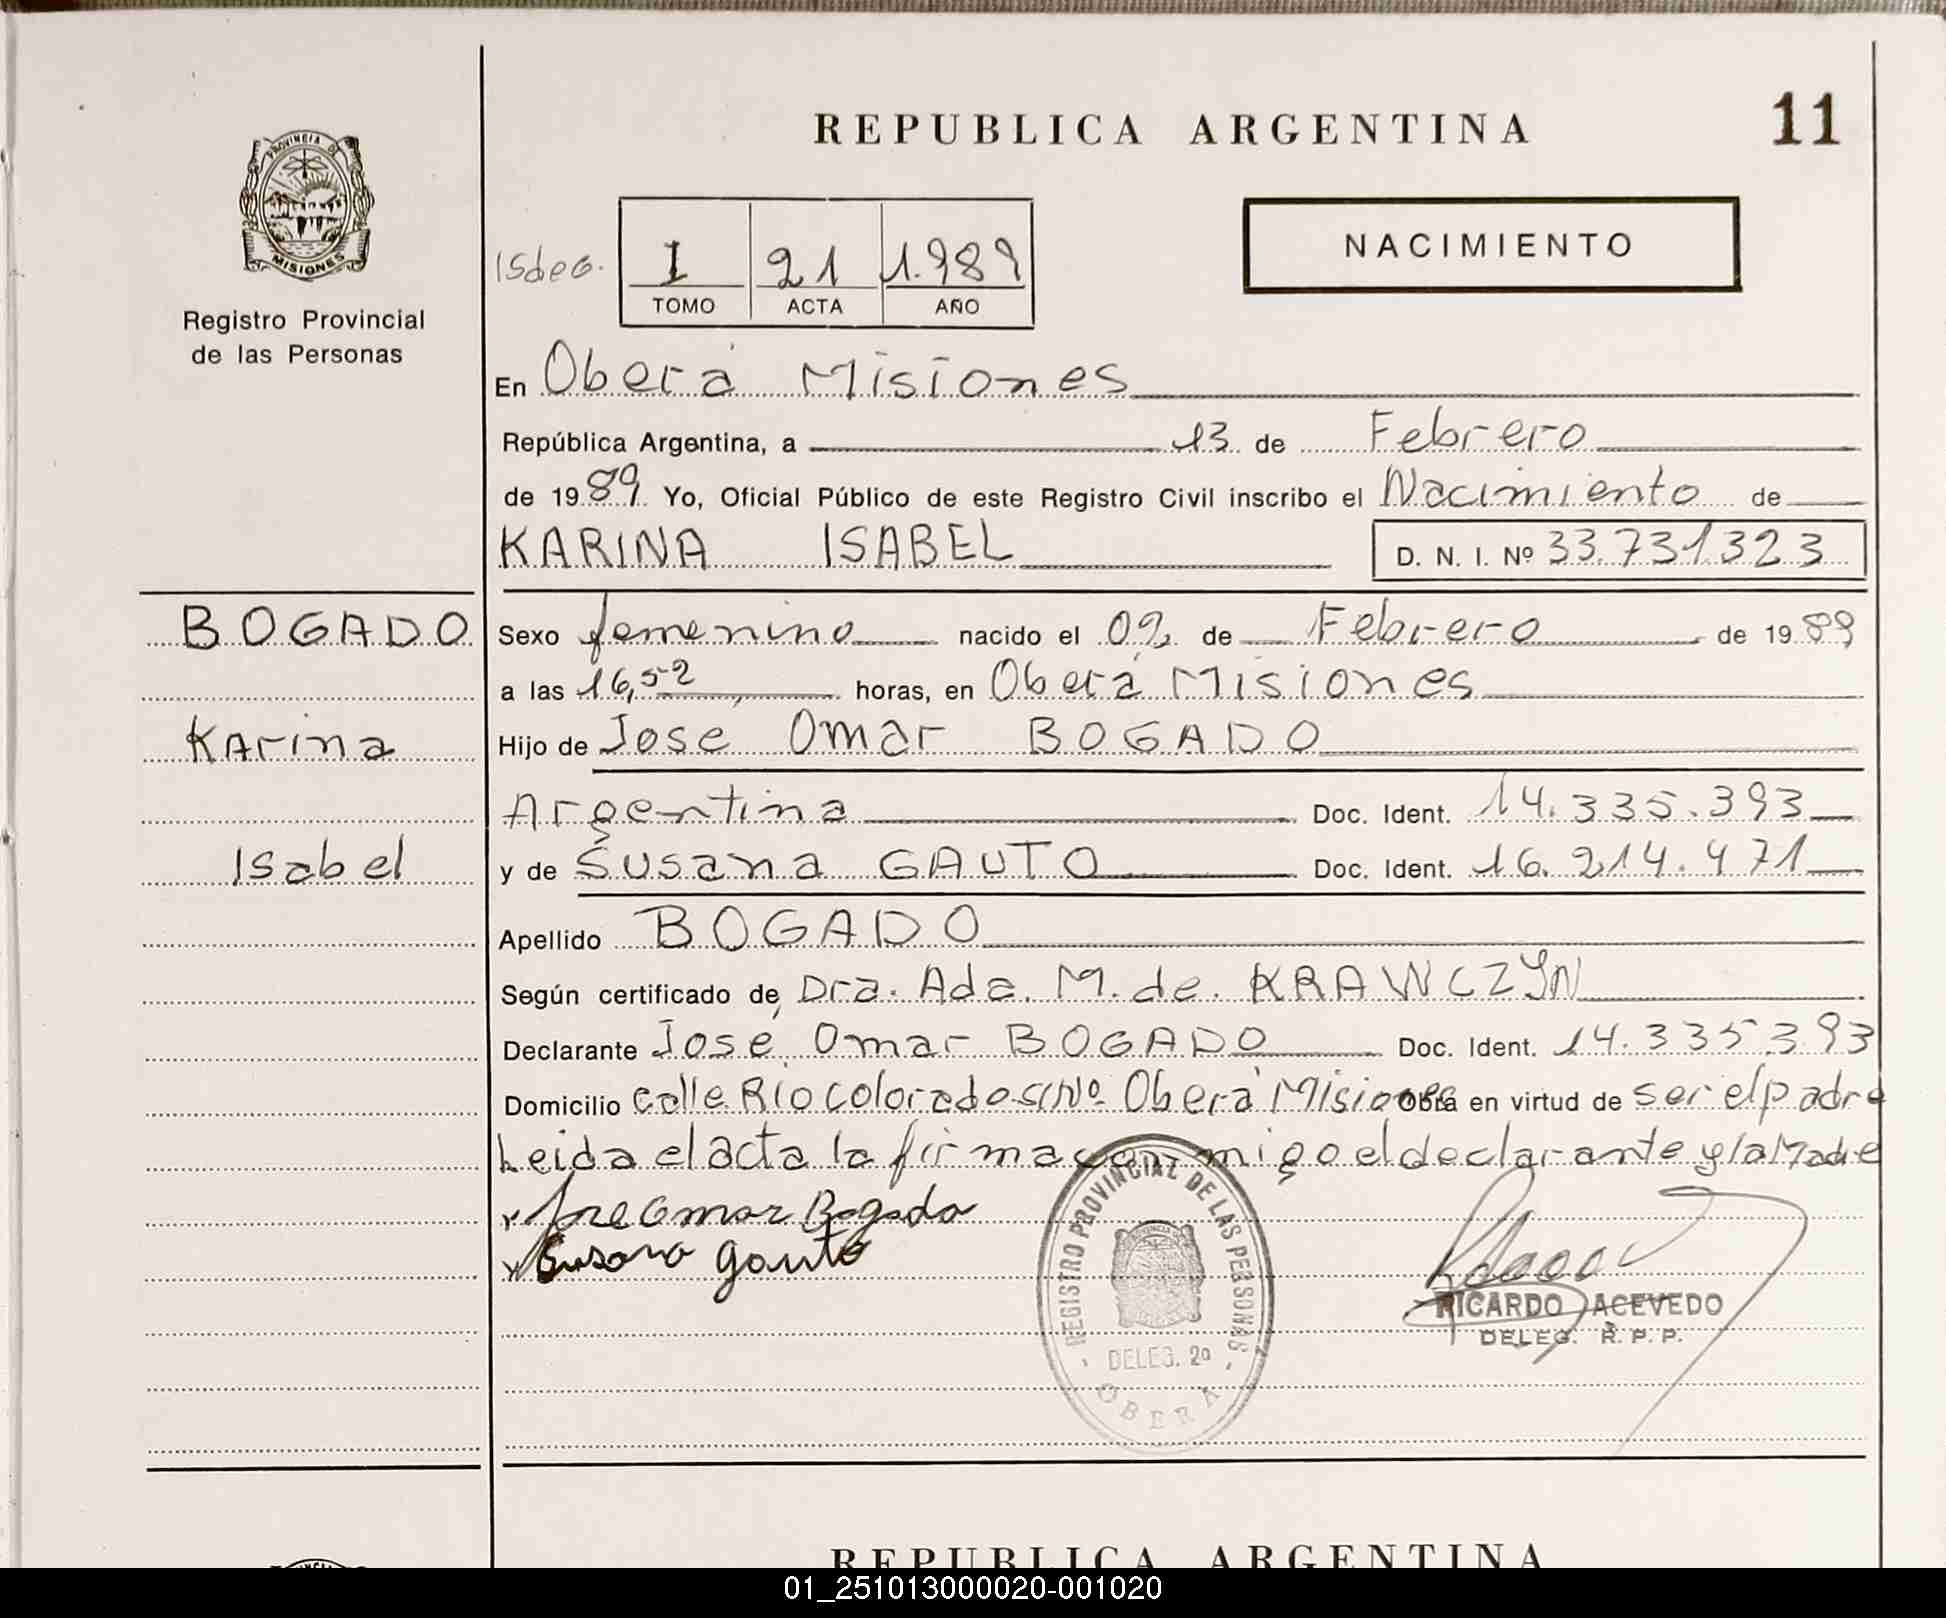 REPUBLICA ARGENTINA
11
PROVINCIA DE
MISIONES
Registro Provincial
de las Personas
NACIMIENTO
I 21 1.989
TOMO ACTA AÑO
En Oberá Misiones
República Argentina, a 13 de Febrero
de 1989 Yo, Oficial Público de este Registro Civil inscribo el Nacimiento de
KARINA ISABEL D. N. I. Nº 33.731.323
BOGADO
Karina
Isabel
Sexo femenino nacido el 09 de Febrero de 1989
a las 16,52 horas, en Oberá Misiones
Hijo de José Omar BOGADO
Argentina Doc. Ident. 14.335.393
y de Susana GAUTO Doc. Ident. 16.214.471
Apellido BOGADO
Según certificado de Dra. Ada M. de KRAWCZYN
Declarante José Omar BOGADO Doc. Ident. 14.335.393
Domicilio calle Rio Colorado s/Nº Oberá Misiones Obra en virtud de ser el padre
Leida el acta la firma conmigo el declarante y la Madre
Jose Omar Bogado
Susana Gauto
REGISTRO PROVINCIAL DE LAS PERSONAS
DELEG. 2a
OBERA
RICARDO ACEVEDO
DELEG. R. P. P.
REPUBLICA ARGENTINA
01_251013000020-001020